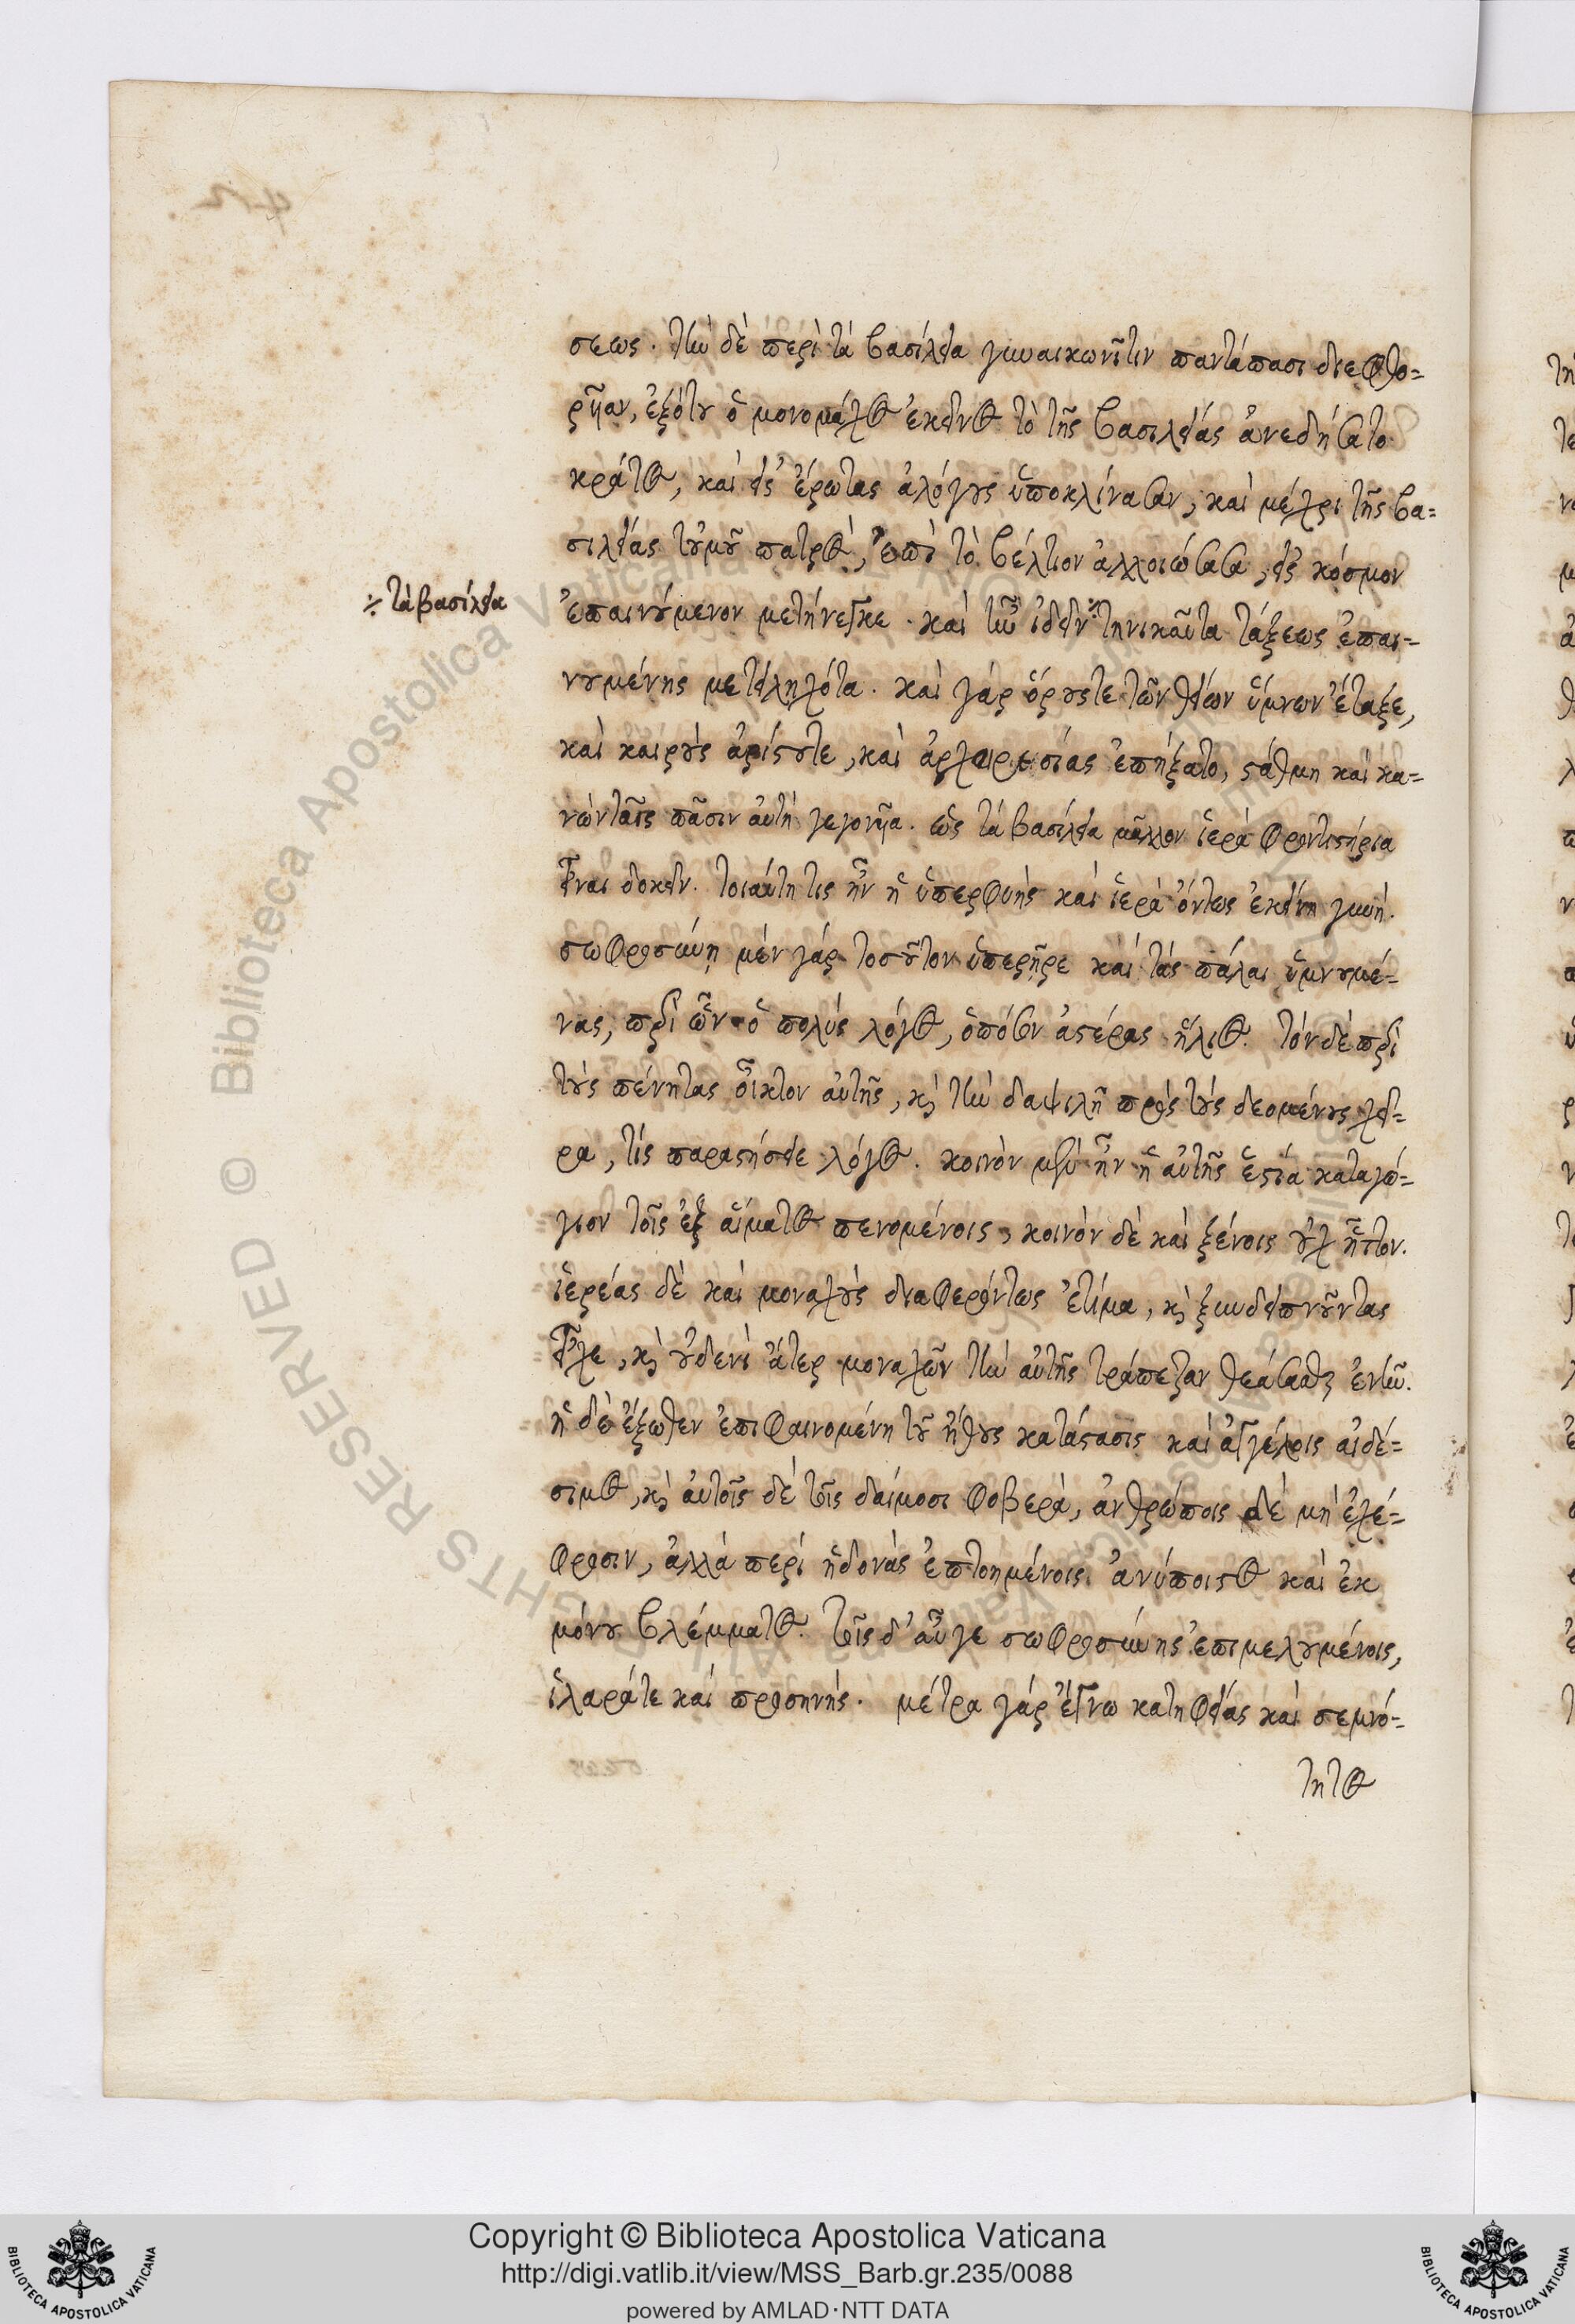 σεως. τὴν δὲ περὶ τὰ βασίλεια γυναικωνῖτιν παντάπασι διεφθο=
ρῆαν, ἐξότου ὁ μονομάχος ἐκεῖνος τὸ τῆς βασιλείας ἀνεδήσατο
κράτος, καὶ εἰς ἔρωτας ἀλόγους ὑποκλίνασαν, καὶ μέχρι τῆς βα=
σιλείας τοὐμοῦ πατρὸς, ἐπὶ τὸ βέλτιον ἀλλοιώσασα, εἰς κόσμον
÷ τὰ βασίλεια
ἐπαινούμενον μετήνεγκε. καὶ ἦν ἰδεῖν ÷ τηνικαῦτα τάξεως ἐπαι=
νουμένης μετειληχότα. καὶ γὰρ ὅρους τε τῶν θείων ὕμνων ἔταξε,
καὶ καιροὺς ἀρίστου τε, καὶ ἀρχαιρεσίας ἐπήξατο, στάθμη καὶ κα=
νὼν ταῖς πᾶσιν αὐτὴ γεγονῆα. ὡς τὰ βασίλεια μᾶλλον ἱερὰ φροντιστήρια
εἶναι δοκεῖν. τοιαύτη τις ἦν ἡ ὑπερφυὴς καὶ ἱερὰ ὄντως ἐκείνη γυνή.
σωφροσύνῃ μὲν γὰρ τοσοῦτον ὑπερῇρε καὶ τὰς πάλαι ὑμνουμέ=
νας, περὶ ὧν ὁ πολὺς λόγος, ὁπόσον ἀστέρας ἥλιος. τὸν δὲ περὶ
τοὺς πένητας οἶκτον αὐτῆς, κὶ τὴν δαψιλῆ πρὸς τοὺς δεομένους χεῖ=
ρα, τίς παραστήσειε λόγος. κοινὸν μὲν ἦν ἡ αὐτῆς ἑστία καταγώ=
γιον τοῖς ἐξ αἵματος πενομένοις, κοινὸν δὲ καὶ ξένοις οὐχ ἧττον.
ἱερέας δὲ καὶ μοναχοὺς διαφερόντως ἐτίμα, κὶ ξυνδειπνοῦντας
εἶχε, κὶ οὐδενὶ ἄτερ μοναχῶν τὴν αὐτῆς τράπεζαν θεάσασθαι ἐνῆν.
ἡ δὲ ἔξωθεν ἐπιφαινομένη τοῦ ἤθους κατάστασις καὶ ἀγγέλοις αἰδέ=
σιμος, κὶ αὐτοῖς δὲ τοῖς δαίμοσι φοβερὰ, ἀνθρώποις δὲ μὴ ἐχέ=
φροσιν, ἀλλὰ περὶ ἡδονὰς ἐπτοημένοις ἀνύποιστος καὶ ἐκ
μόνου βλέμματος. τοῖς δ' αὖ γε σωφροσύνης ἐπιμελουμένοις,
ἱλαρά τε καὶ προσηνής. μέτρα γὰρ ἔγνω κατηφείας καὶ σεμνό=
τητος
Copyright © Biblioteca Apostolica Vaticana
http://digi.vatlib.it/view/MSS_Barb.gr.235/0088
powered by AMLAD·NTT DATA